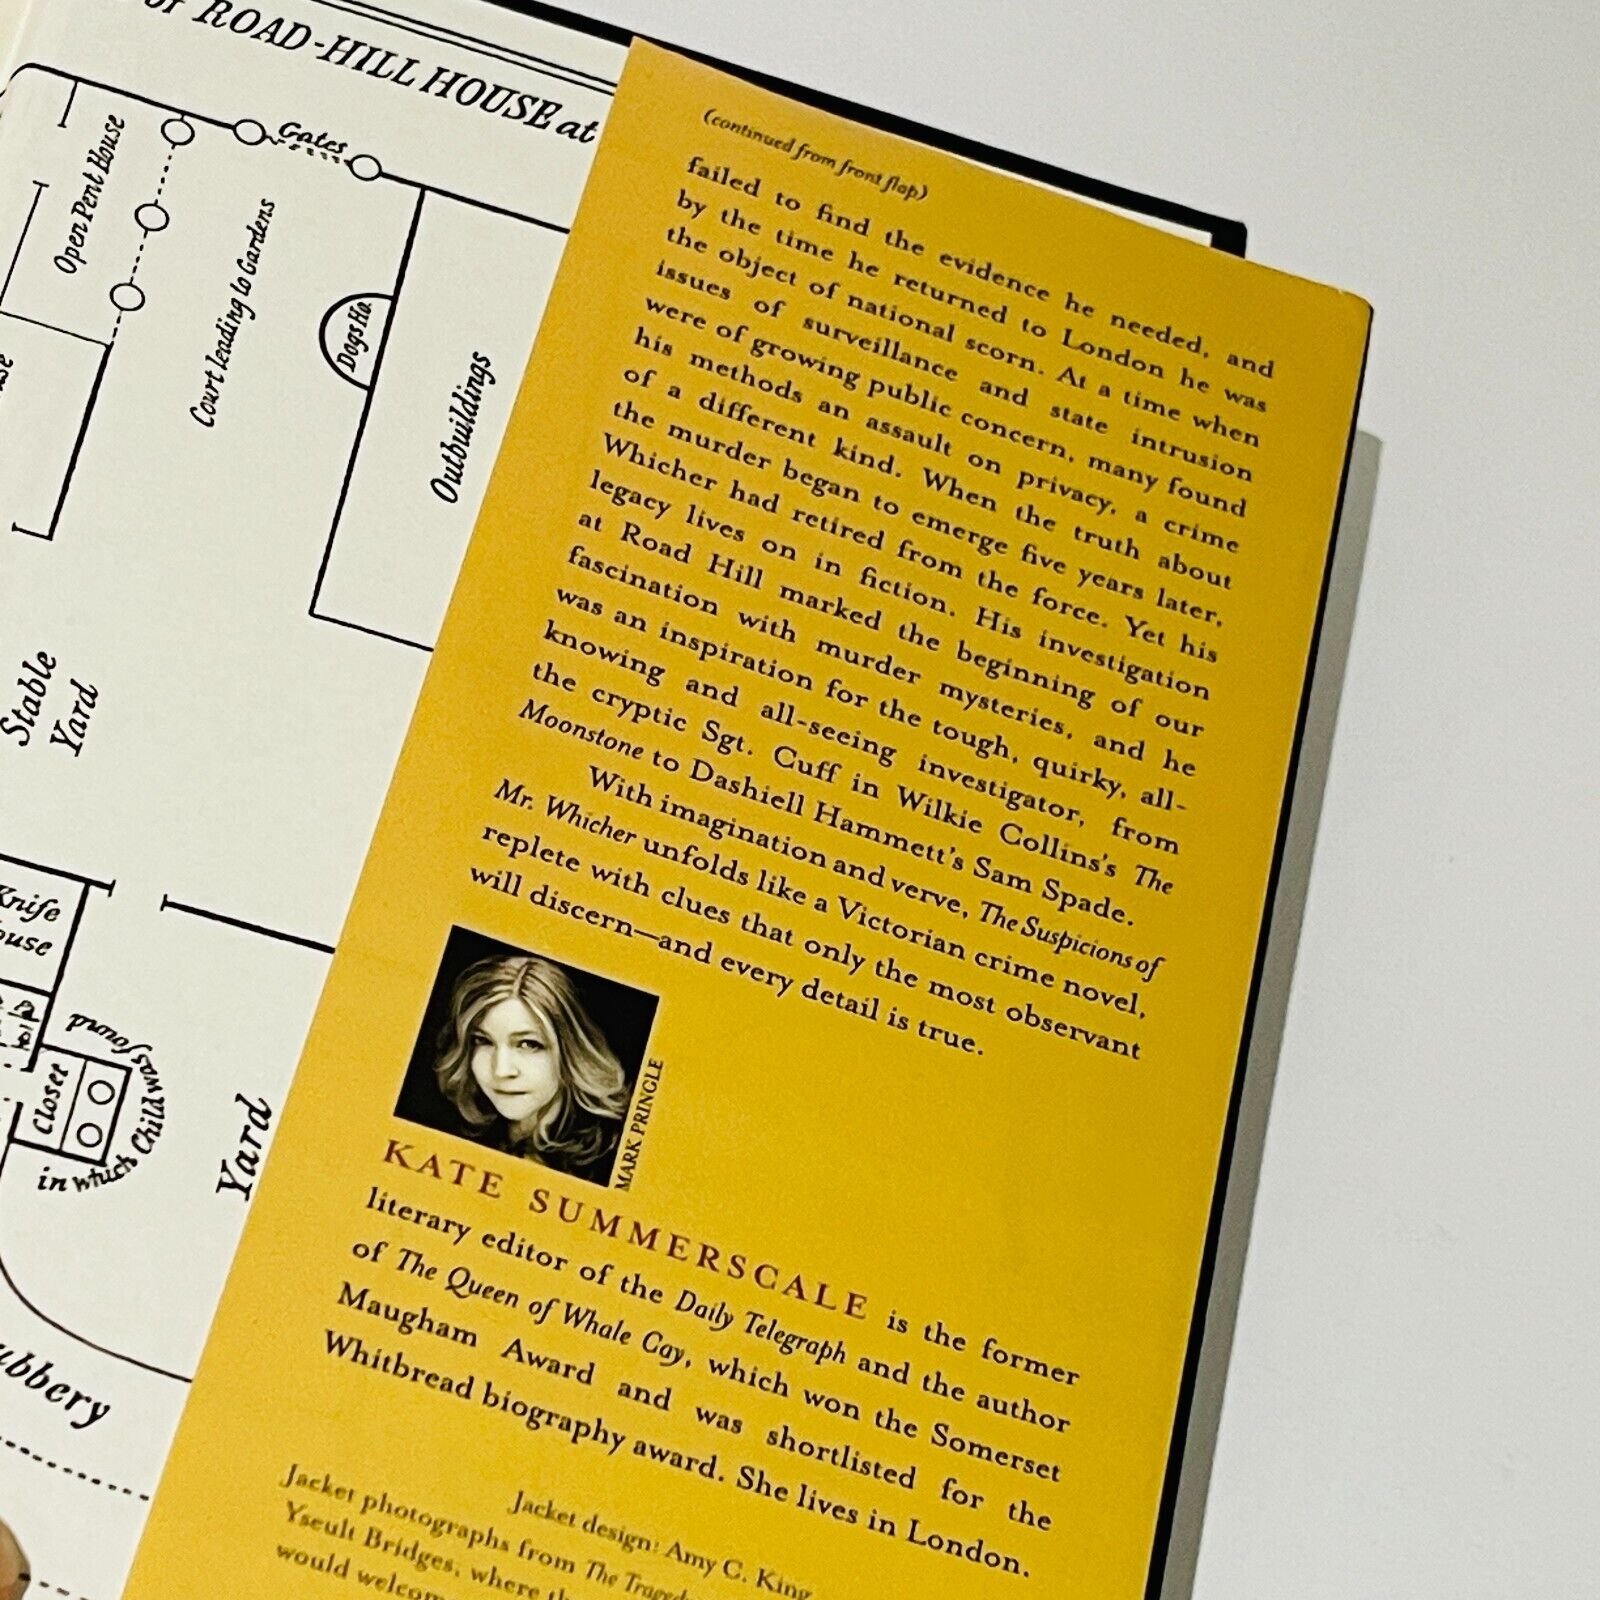 of ROAD-HILL HOUSE at
Gates
Open Pent House
Court leading to Gardens
Dogs Ho.
Outbuildings
Stable
Yard
Knife
Closet
in which Child was found
Yard
(continued from front flap)
failed to find the evidence he needed, and
by the time he returned to London he was
the object of national scorn. At a time when
issues of surveillance and state intrusion
were of growing public concern, many found
his methods an assault on privacy, a crime
of a different kind. When the truth about
the murder began to emerge five years later,
Whicher had retired from the force. Yet his
legacy lives on in fiction. His investigation
at Road Hill marked the beginning of our
fascination with murder mysteries, and he
was an inspiration for the tough, quirky, all-
knowing and all-seeing investigator, from
the cryptic Sgt. Cuff in Wilkie Collins's The
Moonstone to Dashiell Hammett's Sam Spade.
With imagination and verve, The Suspicions of
Mr. Whicher unfolds like a Victorian crime novel,
replete with clues that only the most observant
will discern—and every detail is true.
MARK PRINGLE
KATE SUMMERSCALE is the former
literary editor of the Daily Telegraph and the author
of The Queen of Whale Cay, which won the Somerset
Maugham Award and was shortlisted for the
Whitbread biography award. She lives in London.
Jacket design: Amy C. King
Jacket photographs from The
Yseult Bridges, where
would